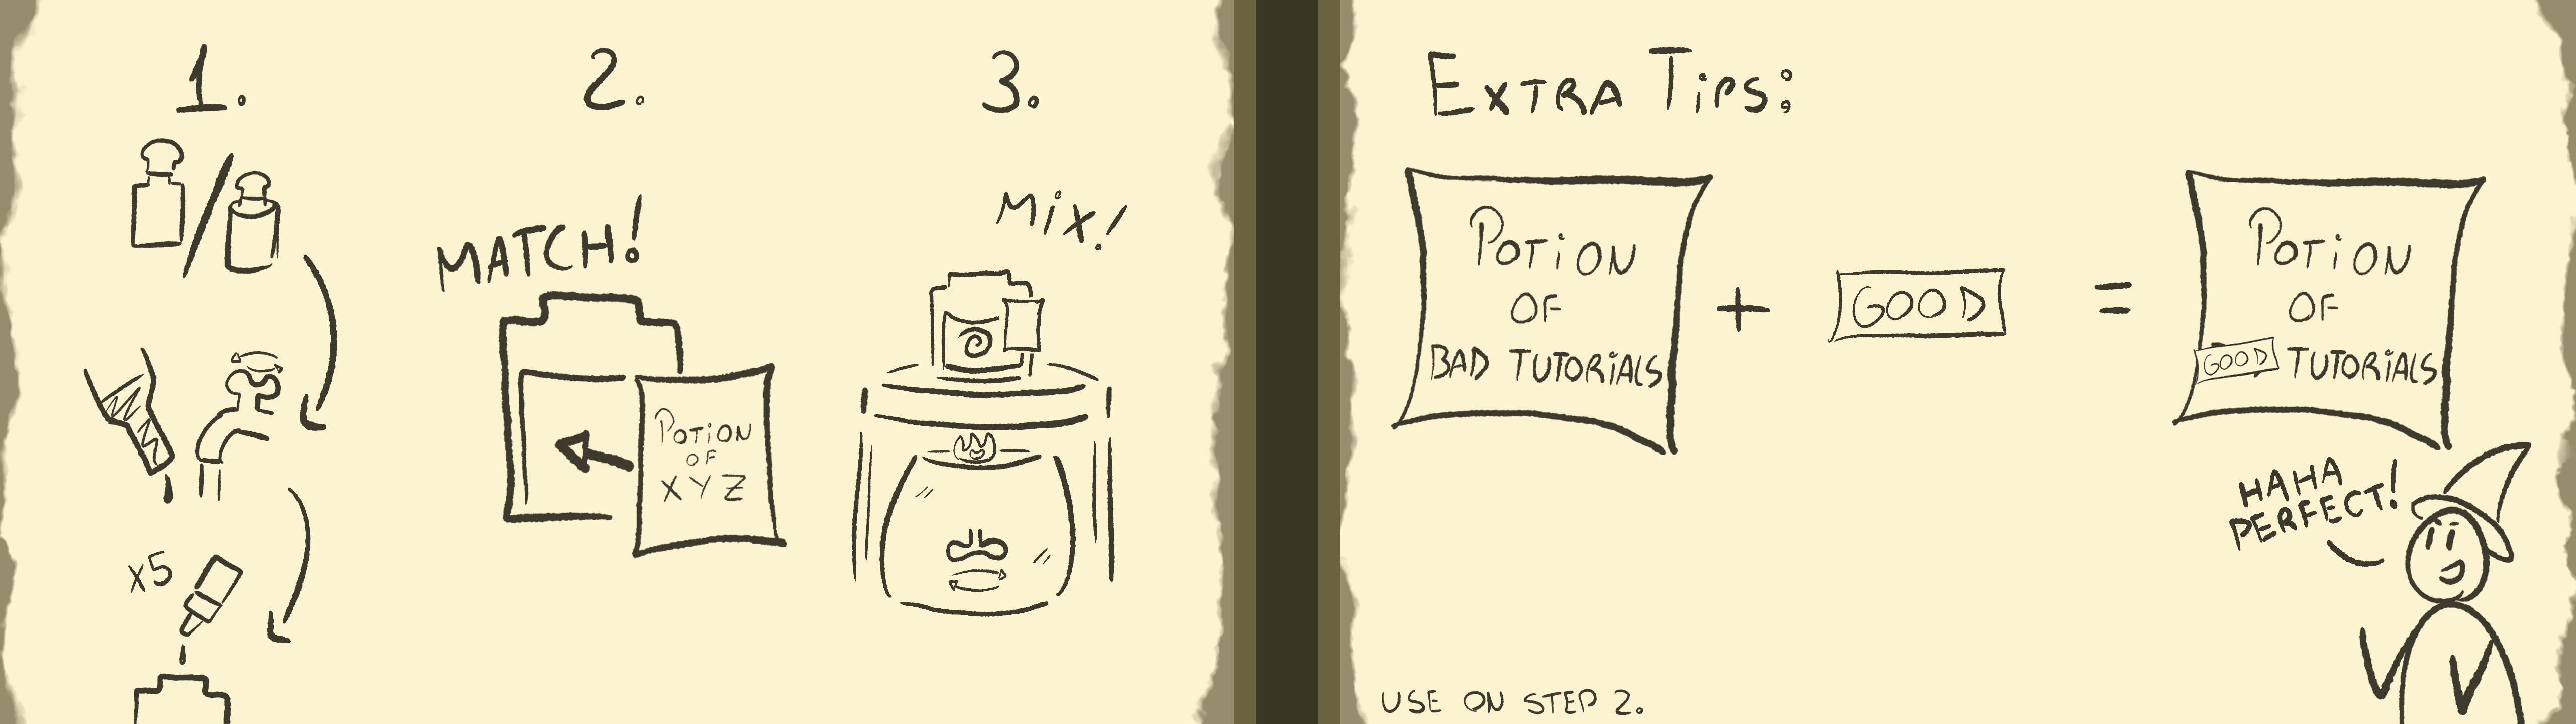 1.
x5
2.
MATCH!
POTION
OF
XYZ
3.
MIX!
EXTRA TIPS:
POTION
OF
BAD TUTORIALS
+
GOOD
=
POTION
OF
GOOD TUTORIALS
HAHA
PERFECT!
USE ON STEP 2.